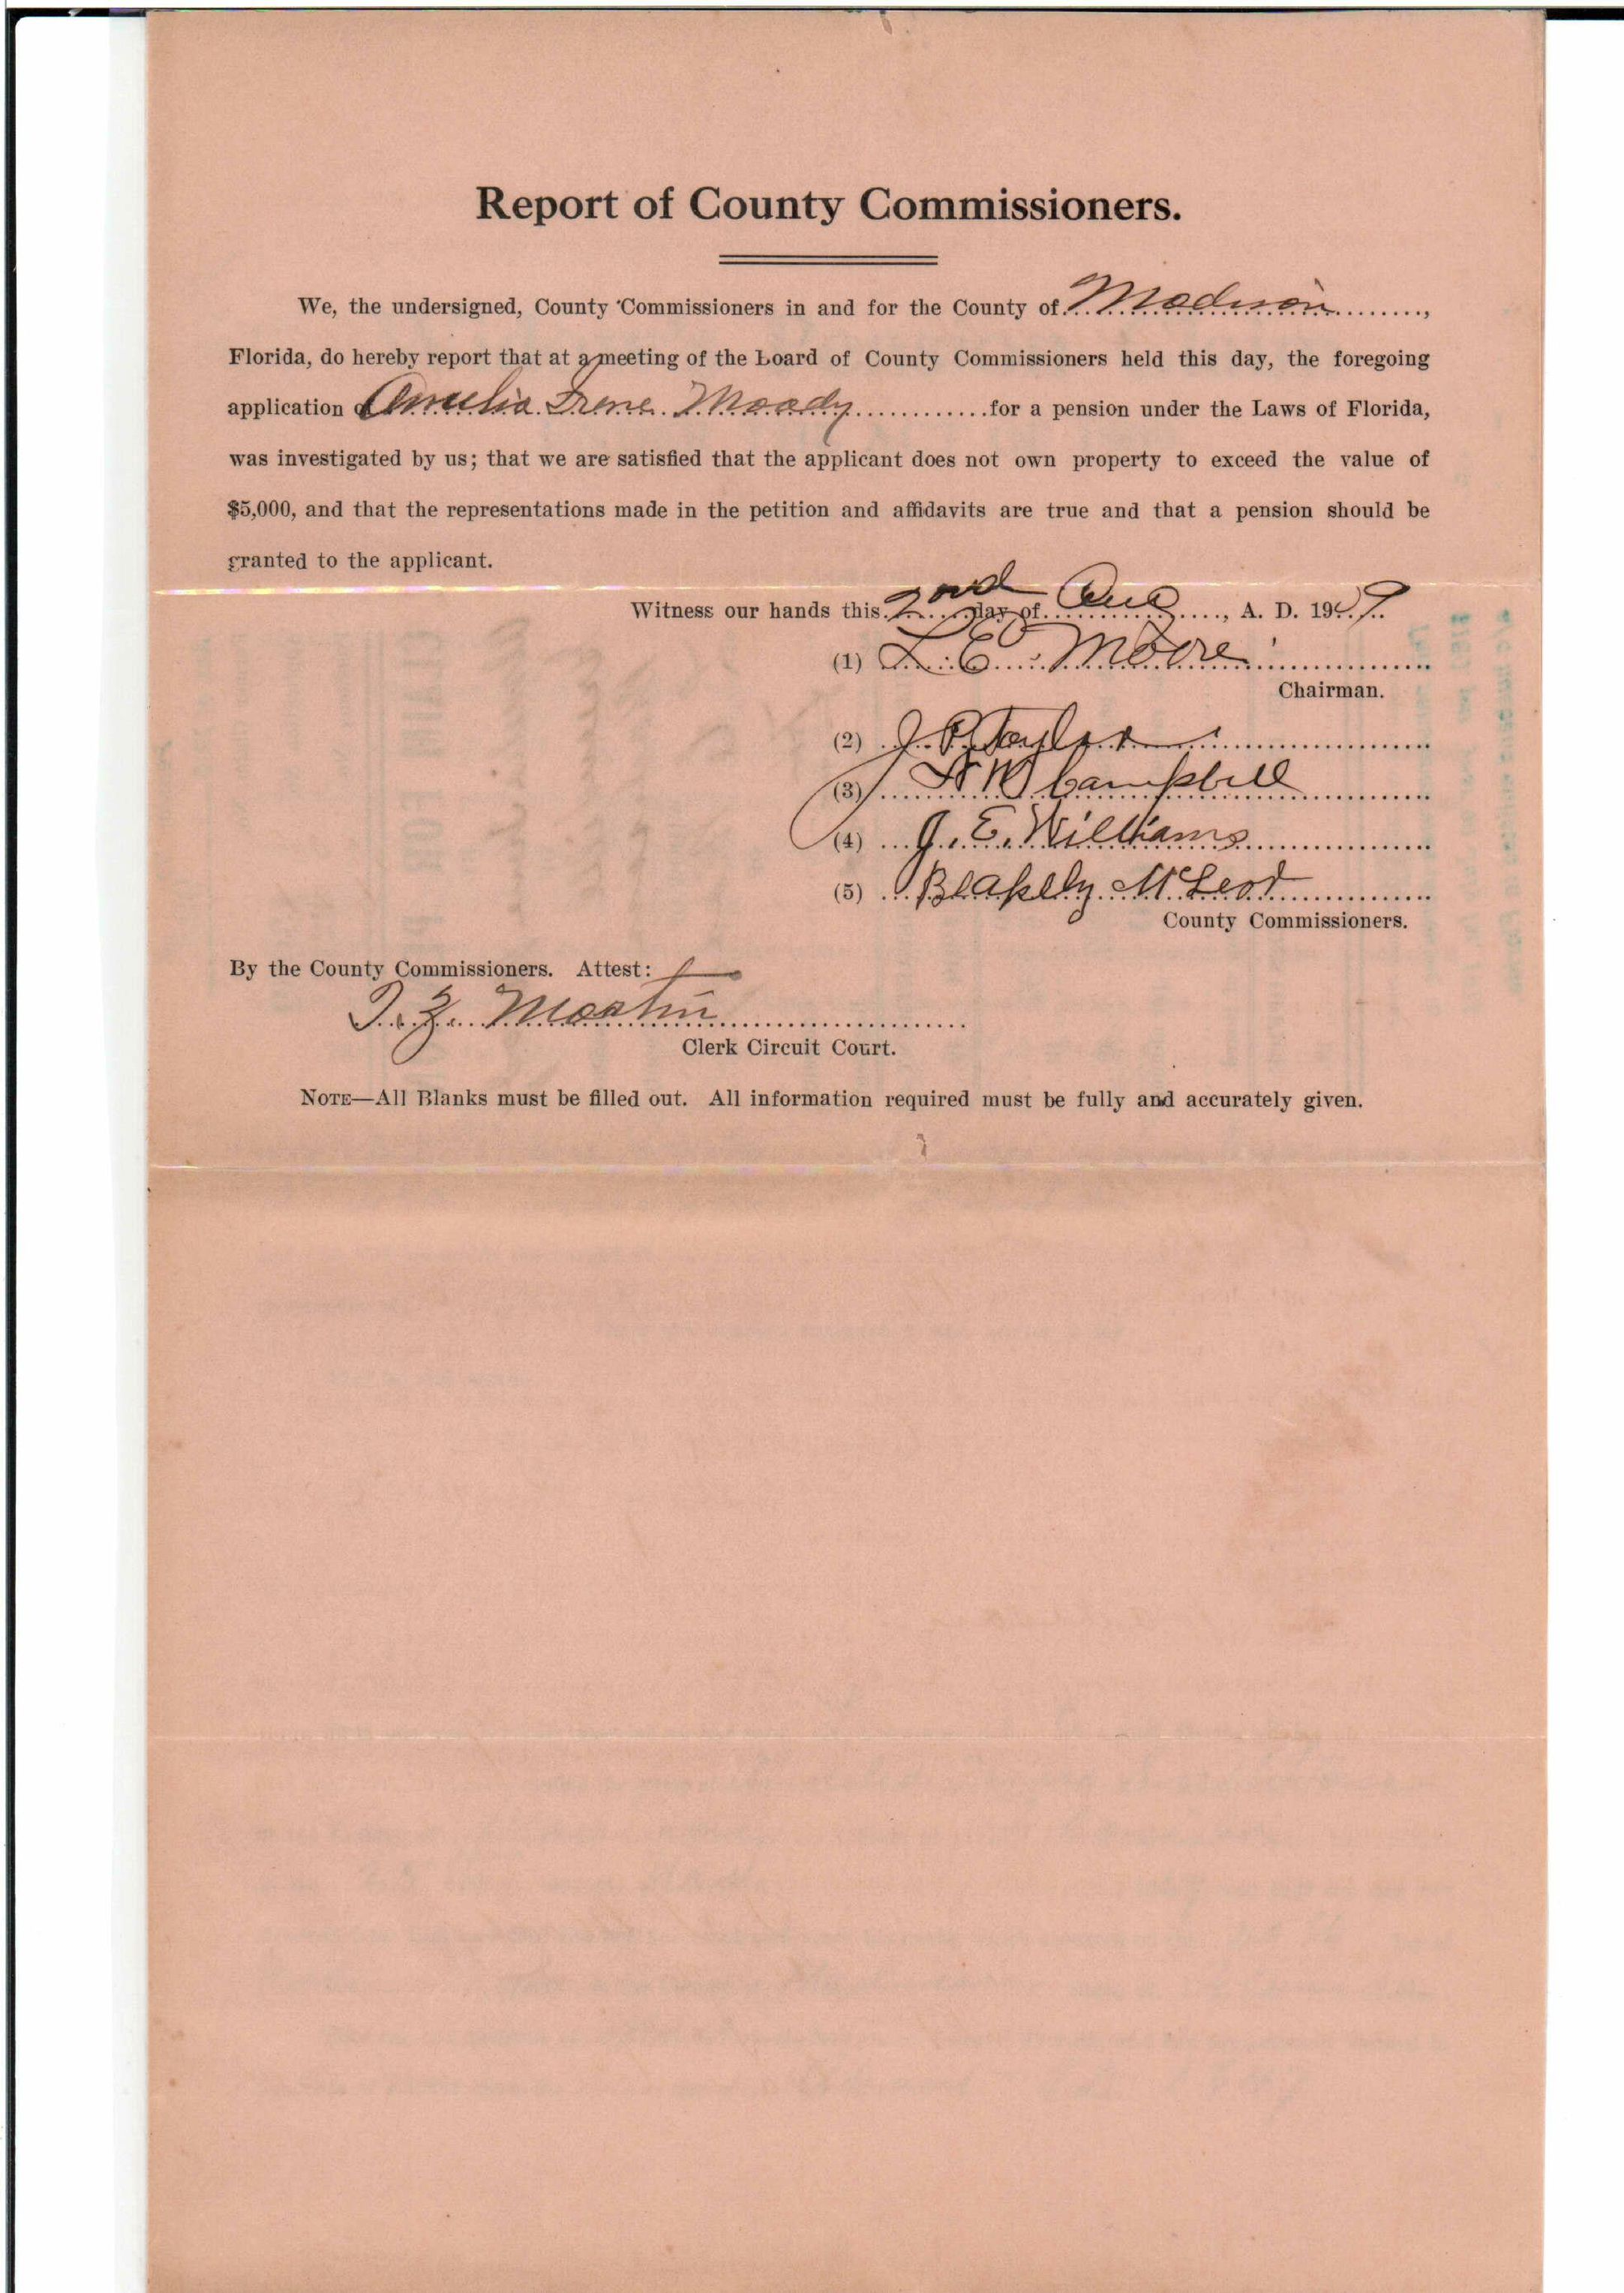 Report of County Commissioners.
We, the undersigned, County Commissioners in and for the County of Madison,
Florida, do hereby report that at a meeting of the Loard of County Commissioners held this day, the foregoing
application of Amelia Irene Moody for a pension under the Laws of Florida,
was investigated by us; that we are satisfied that the applicant does not own property to exceed the value of
$5,000, and that the representations made in the petition and affidavits are true and that a pension should be
granted to the applicant.
Witness our hands this 2nd day of Aug, A. D. 1909.
(1) L. E. Moore
Chairman.
(2) J. P. Taylor
(3) Campbell
(4) J. E. Williams
(5) Blakely McLeod
County Commissioners.
By the County Commissioners. Attest:
T. Z. Martin
Clerk Circuit Court.
NOTE—All Blanks must be filled out. All information required must be fully and accurately given.